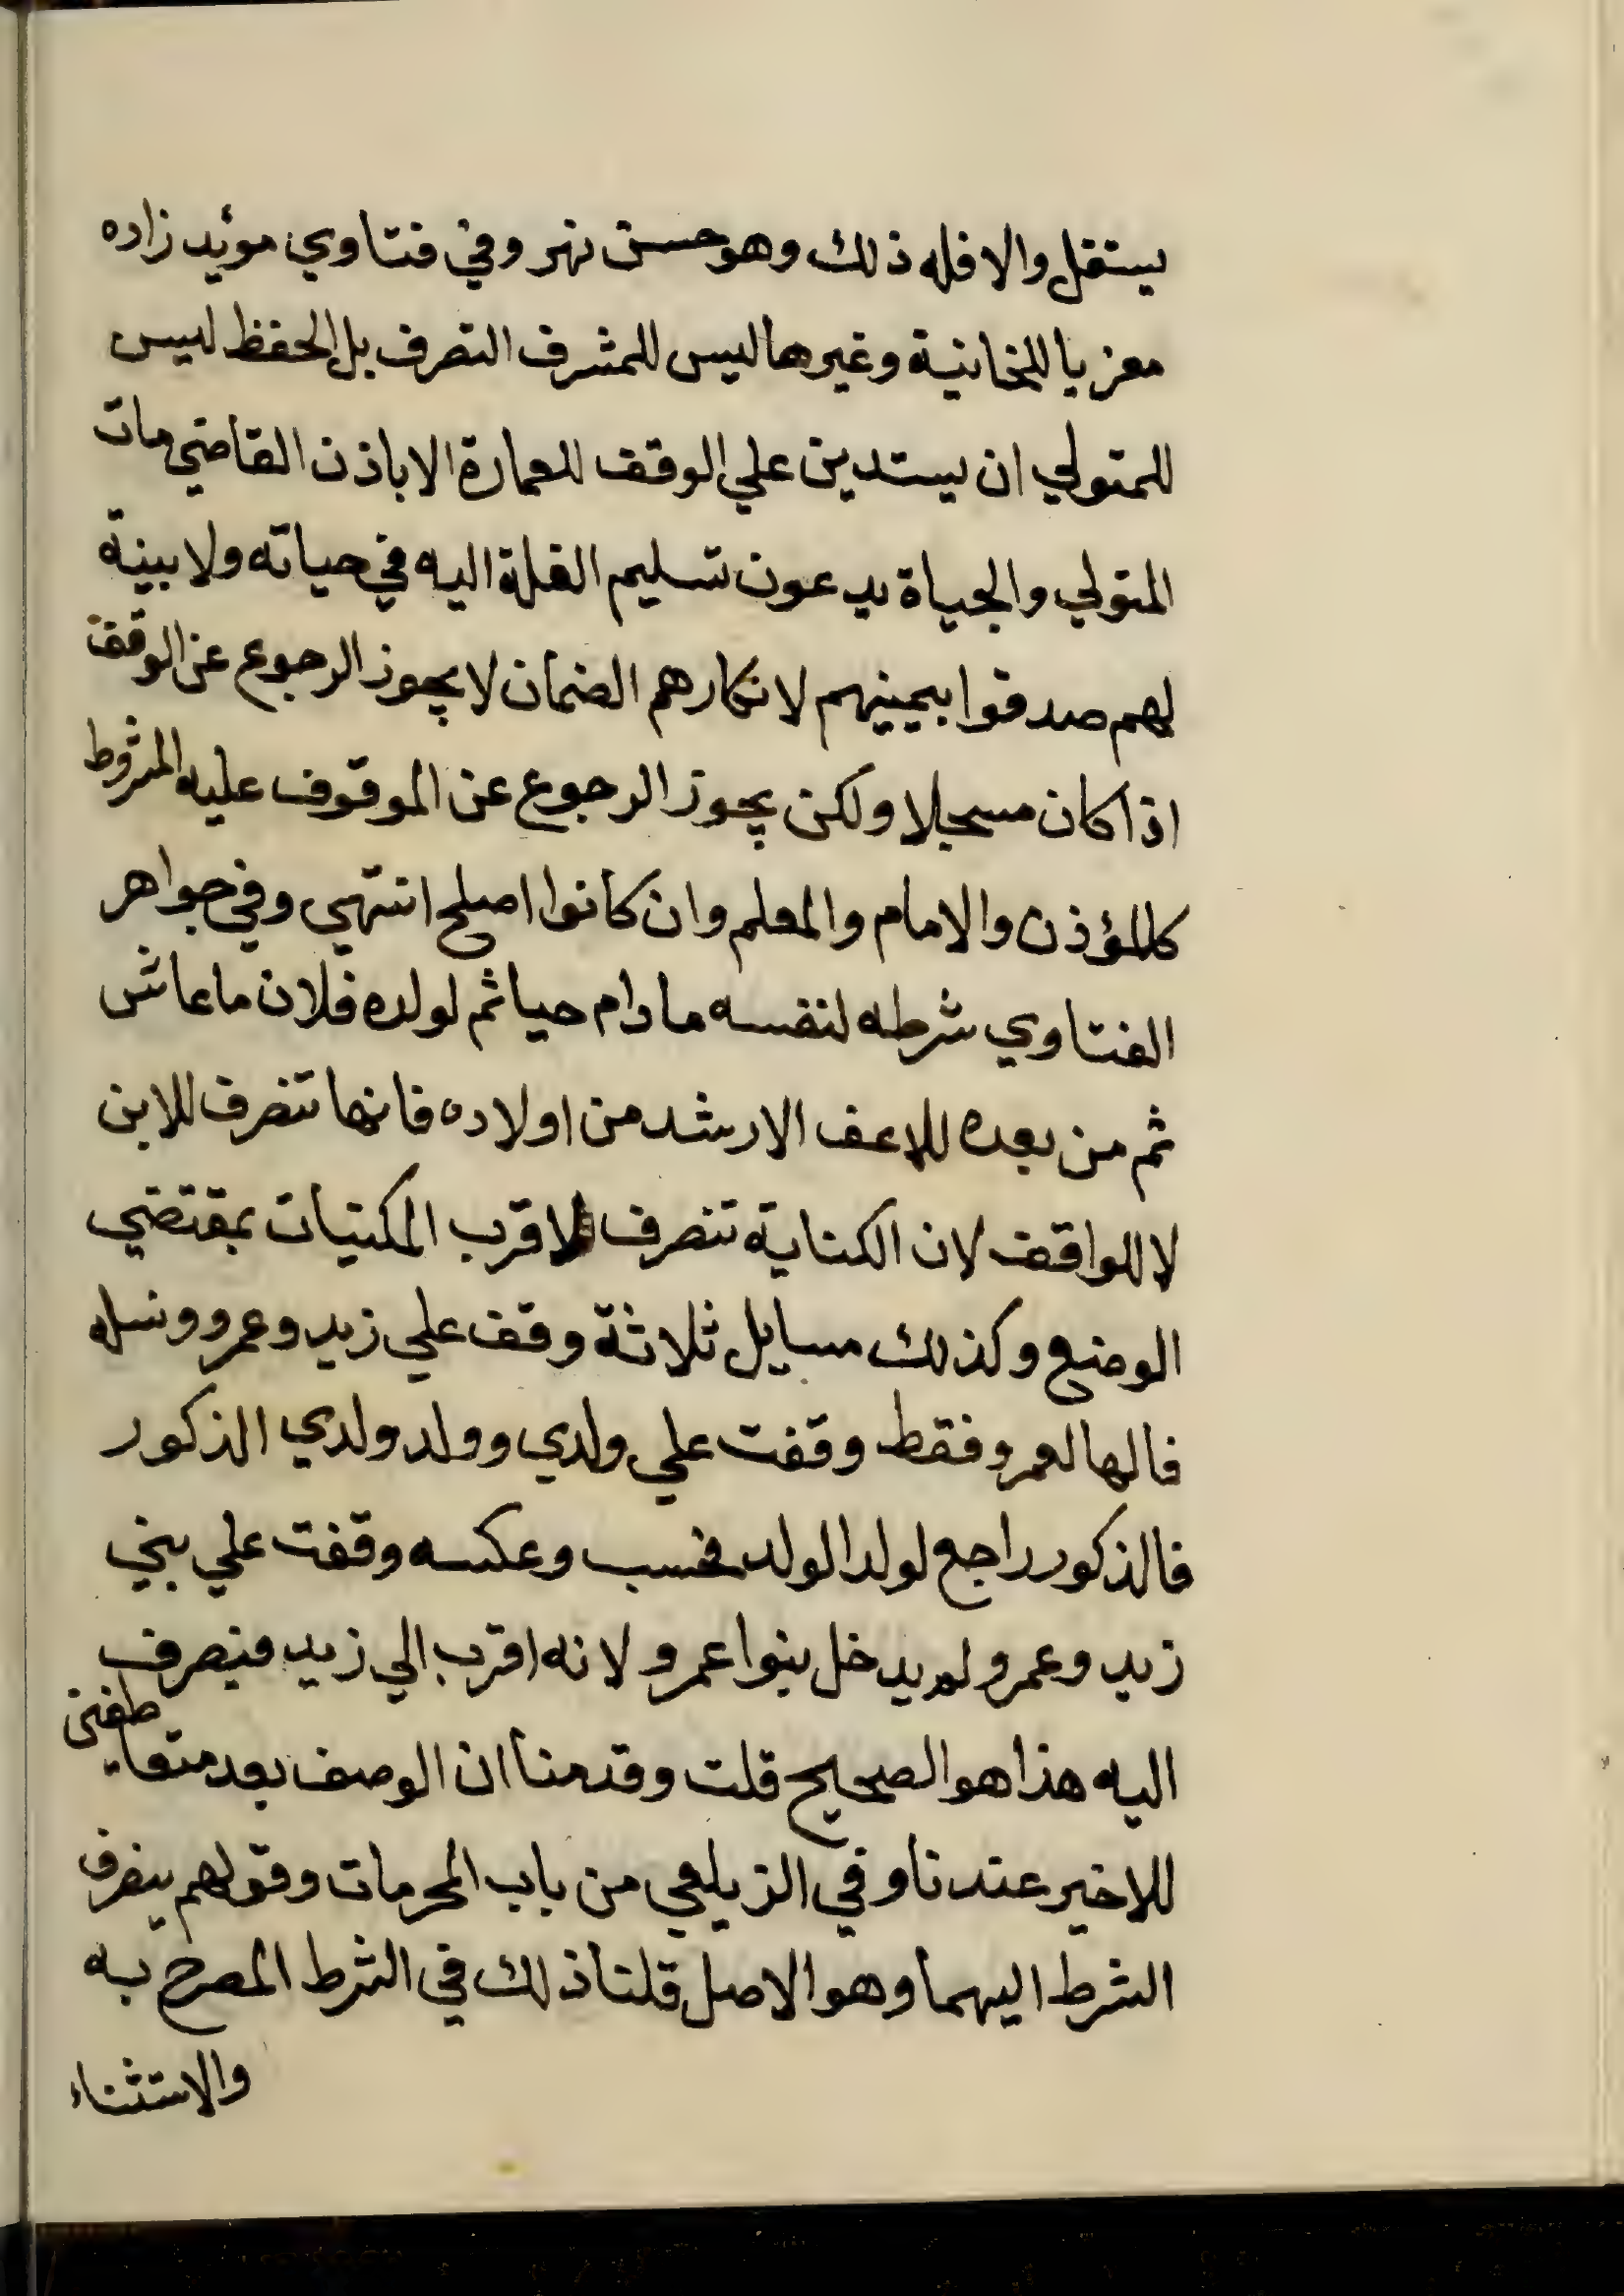 يستقل والا فله ذلك وهو حسن نهر وفي فتاوي مؤيد زاده
معزيا للخانية وغيرها ليس للمشرف التصرف بل الحفظ ليس
للمتولي ان يستدين علي الوقف للعمارة الا باذن القاضي مات
المتولي والجباة يدعون تسليم الغلة اليه في حياته ولا بينة
لهم صدقوا بيمينهم لانكارهم الضمان لا يجوز الرجوع عن الوقف
اذا كان مسجلا ولكن يجوز الرجوع عن الموقوف عليه المشروط
كالمؤذن والامام والمعلم وان كانوا اصلح انتهي وفي جواهر
الفتاوي شرطه لنفسه ما دام حيا ثم لولده فلان ما عاش
ثم من بعده للاعف الارشد من اولاده فانها تنصرف للابن
لا للواقف لان الكناية تنصرف لاقرب المكنيات بمقتضي
الوضع وكذلك مسايل ثلاثة وقف علي زيد وعمرو ونسله
فالها لعمرو فقط وقفت علي ولدي وولد ولدي الذكور
فالذكور راجع لولد الولد فحسب وعكسه وقفت علي بني
زيد وعمرو لم يدخل بنوا عمرو لانه اقرب الي زيد فيصرف
اليه هذا هو الصحيح قلت وقدمنا ان الوصف بعد متعاطفين
للاخير عندنا وفي الزيلعي من باب المحرمات وقولهم ينصرف
الشرط اليهما وهو الاصل قلنا ذلك في الشرط المصرح به
والاستثناء